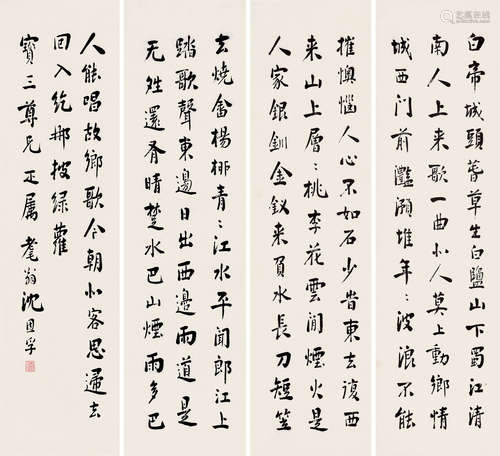 白帝城頭萅草生白鹽山下蜀江清
南人上来歌一曲北人莫上動鄉情
城西門前灩澦堆年〻波浪不能
摧懊惱人心不如石少旹東去復西
来山上層〻桃李花雲間煙火是
人家銀釧金釵来負水長刀短笠
去燒畬楊柳青〻江水平聞郎江上
踏歌聲東邊日出西邊雨道是
无還有晴楚水巴山煙雨多巴
人能唱故鄉歌今朝北客思歸去
回入紇那披緑蘿
寶三尊兄正属 耄翁沈恩孚